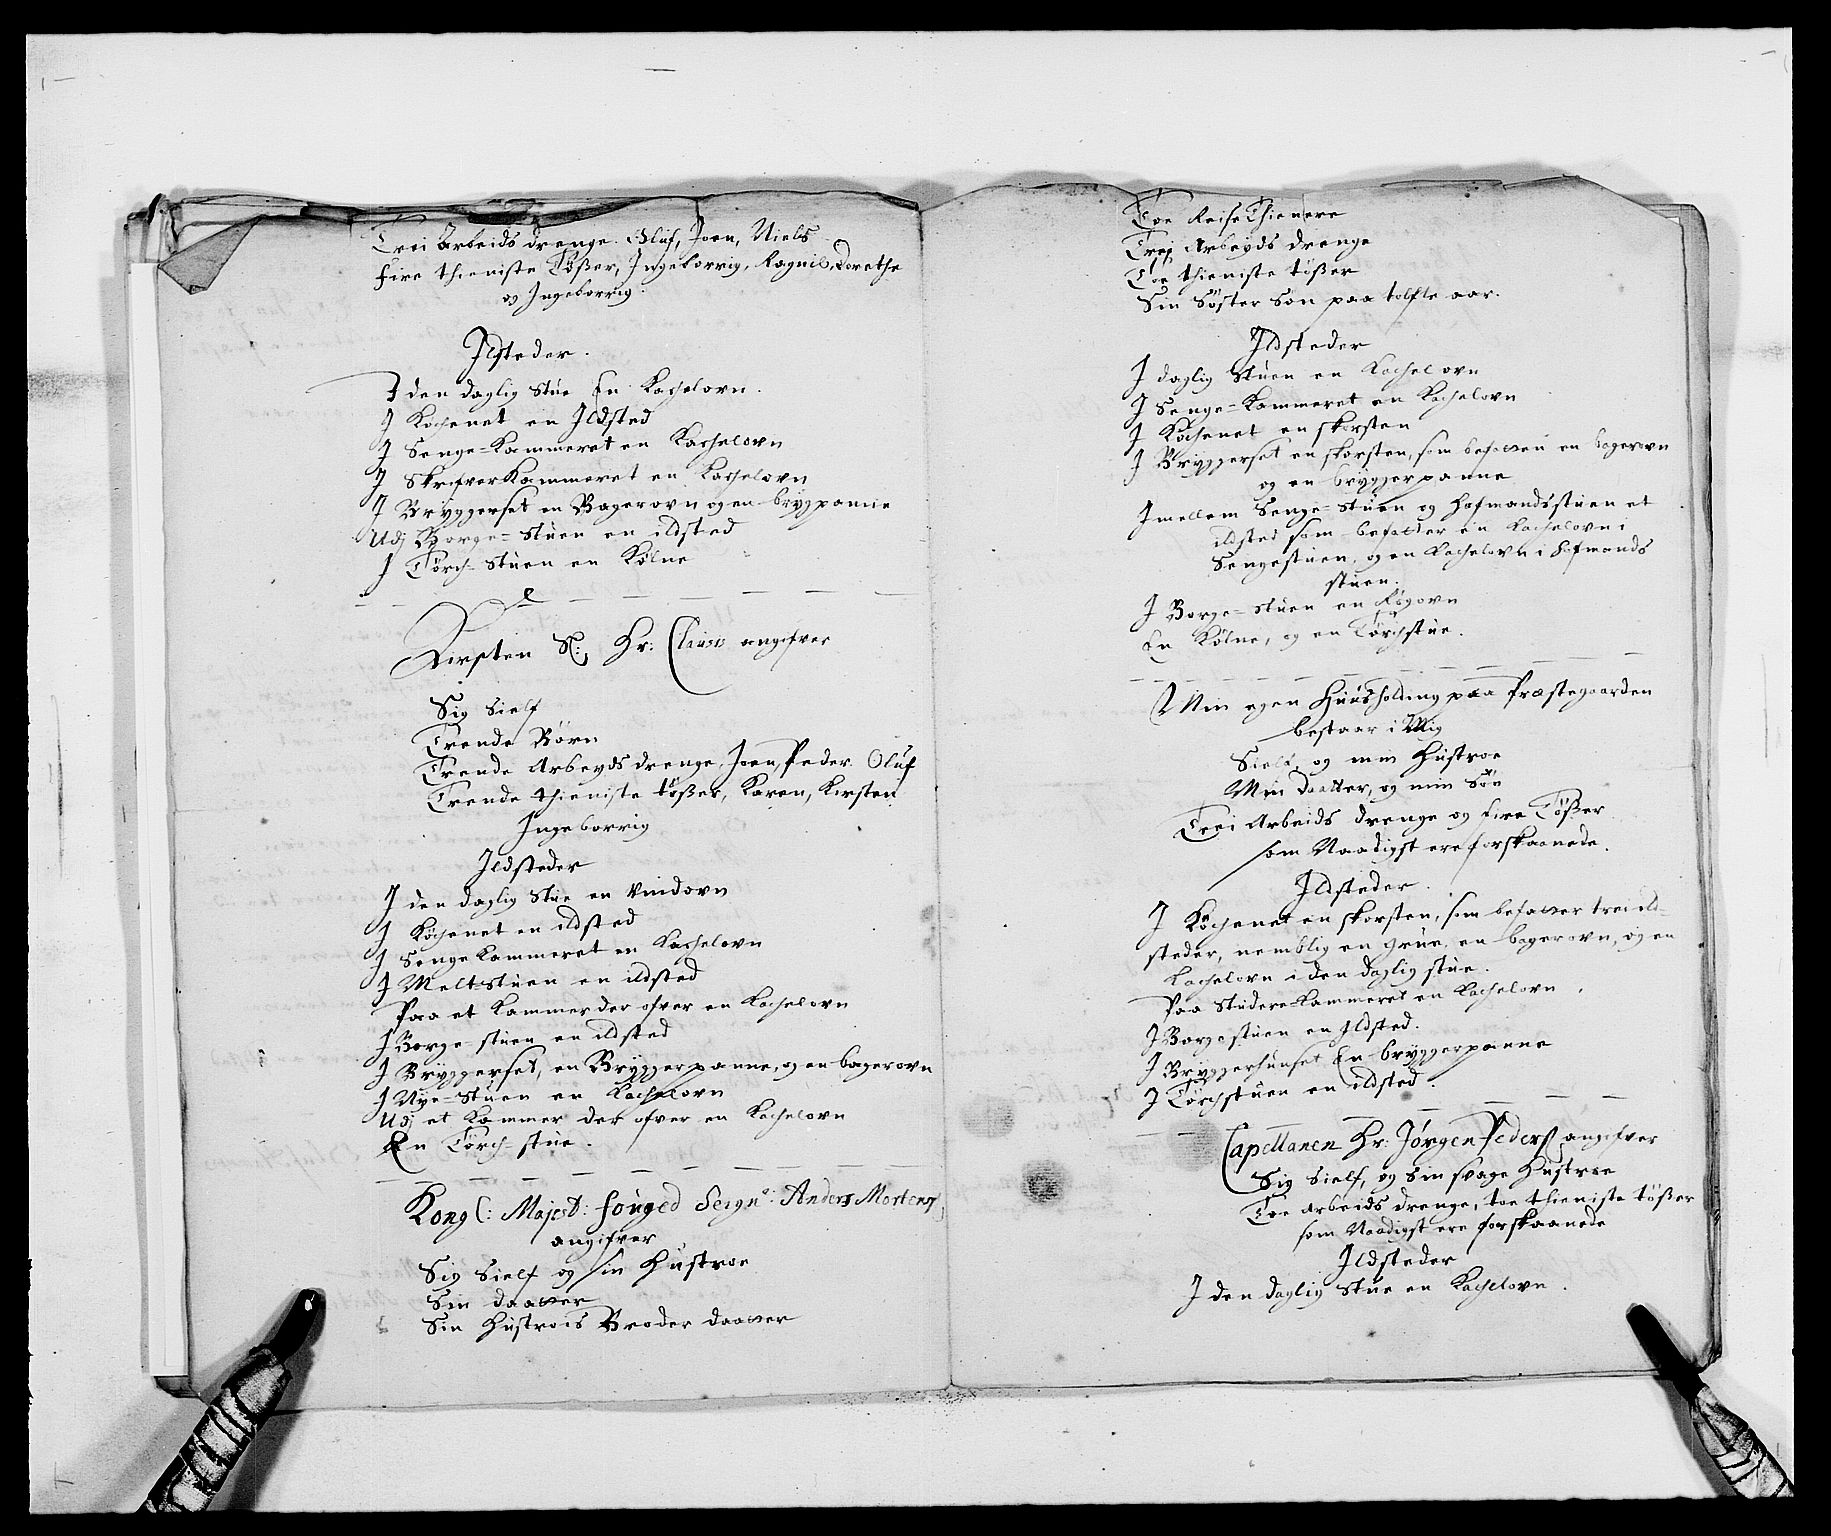 Trei Arbeids drenge. Oluf, Joen, Niels
fire thieniste Tøßer, Ingeborrig, Ragnil, Dorethe
og Ingeborrig.
Ildsteder.
I den daglig Stue En Kachelovn.
I Kochenet en Ildsted
I Senge-Kammeret en Kachelovn
I Skrifver Kammeret en Kachelovn
I Bryggerset en Bagerovn og en brygpanne
Udj Borge-Stuen en ildsted
I Tørch-Stuen en Kølne
Kirsten Sl: Hr: Clauses angifver
Sig Sielf
Trende Børn
Trende Arbeyds drenge, Joen, Peder Oluf
Trende thieniste tøßer, Karen, Kirsten
Ingeborrig
Ildsteder
I den daglig Stue en Vindovn
I Kochenet en ildsted
I Senge Kammeret en Kachelovn
I Melt-Stuen en ildsted
Paa et Kammer der ofver en Kachelovn
I Borge-stuen en ildsted
I Bryggerset, en Bryggerpanne, og en bagerovn
I Nye-Stuen en Kachelovn
Udj et Kammer der ofver en Kachelovn
En Tørch-stue.
Kongl: Majest: fouged Seign: Anders Mortens
angifver
Sig Sielf og sin Hustroe
Sin daatter
Sin Hustrois Broder daatter
Toe Reise Thienere
Trej Arbeyds drenge
Toe thieniste tøßer
Sin Søster Søn paa tolfte aar.
Ildsteder
I daglig Stuen en Kachelovn
I Senge-Kammeret en Kachelovn
I Kochenet en skorsten
I Bryggerset en skorsten, som befatter en bagerovn
og en bryggerpanne
Imellem Senge-Stuen og Hofmandsstuen et
ildsted som befatter en Kachelovn i
Sengestuen, og en Kachelovn i Hofmands
stuen.
I Borge-Stuen en Røgovn
En Kølne, og en Tørchstue.
Min egen Huusholding paa Præstegaarden
bestaar i Mig
Sielf, og min Hustroe
Min Daatter, og min Søn
Trei Arbeids drenge og fire Tøßer
som Naadigst ere forskaanede.
Ildsteder.
I Køchenet en skorsten, som befatter trei ild-
steder, nemblig en Grue, en bagerovn, og en
Kachelovn i den daglig stue.
Paa Studere-Kammeret en Kachelovn
I Borgestuen en Ildsted.
I Bryggerhuuset En bryggerpanne
I Tørchstuen en ildsted.
Capellanen Hr: Jørgen Peders angifver
Sig Sielf, og Sin svage Hustroe
Toe Arbeids drenge, toe thieniste tøßer
som Naadigst ere forskaanede
Ildsteder
I den daglig Stue en Kachelovn.